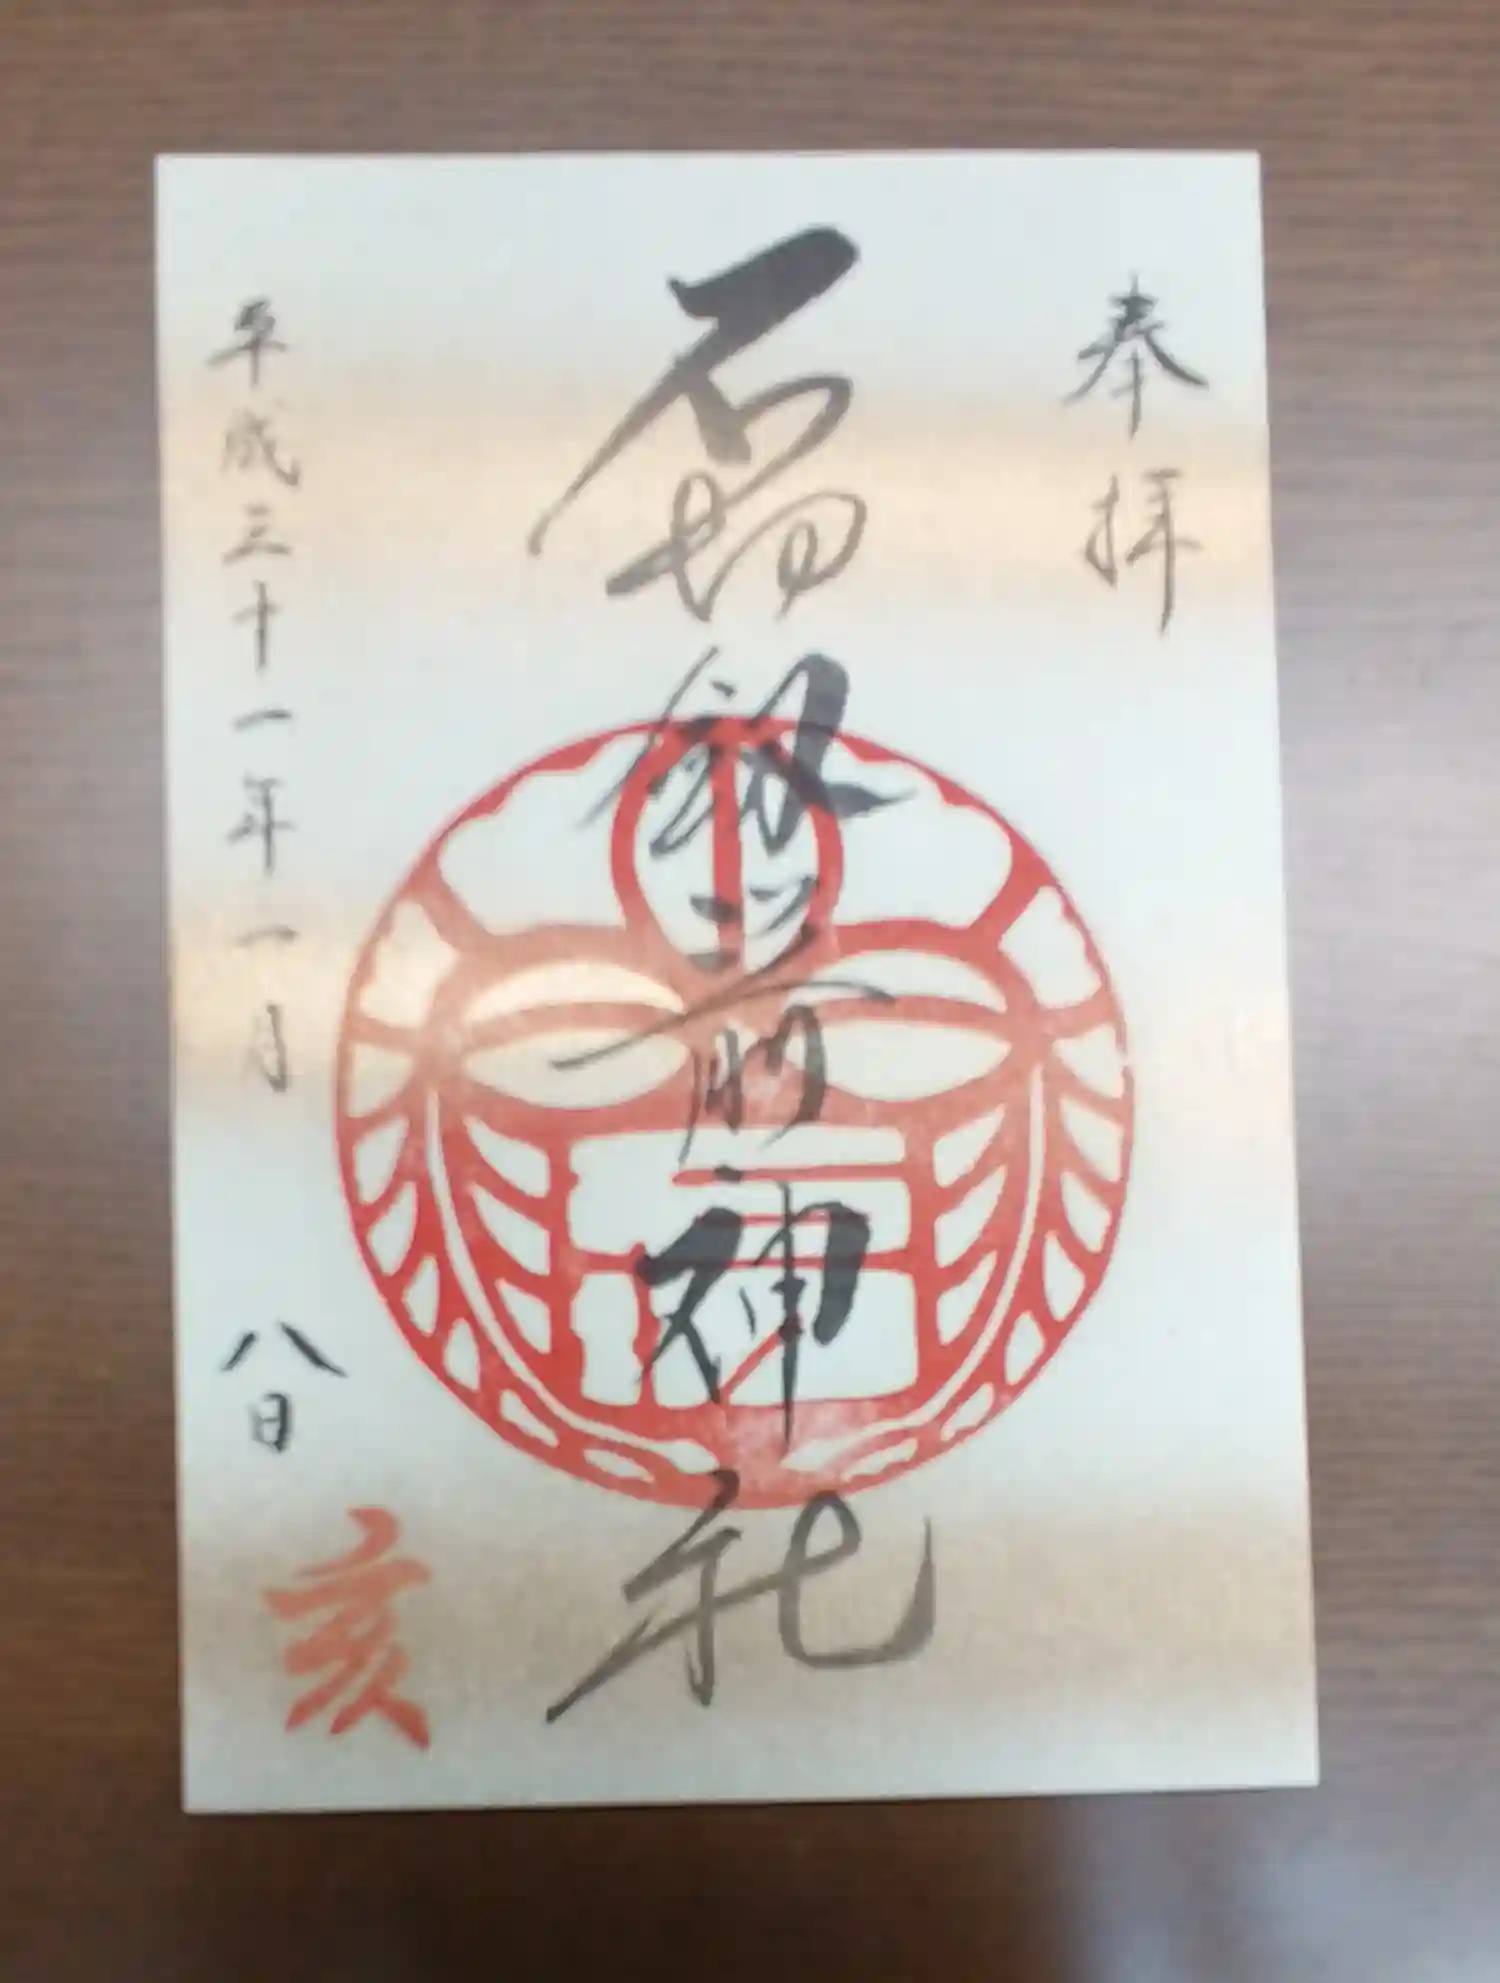 奉拝
石切劔箭神社
平成三十一年一月八日
亥